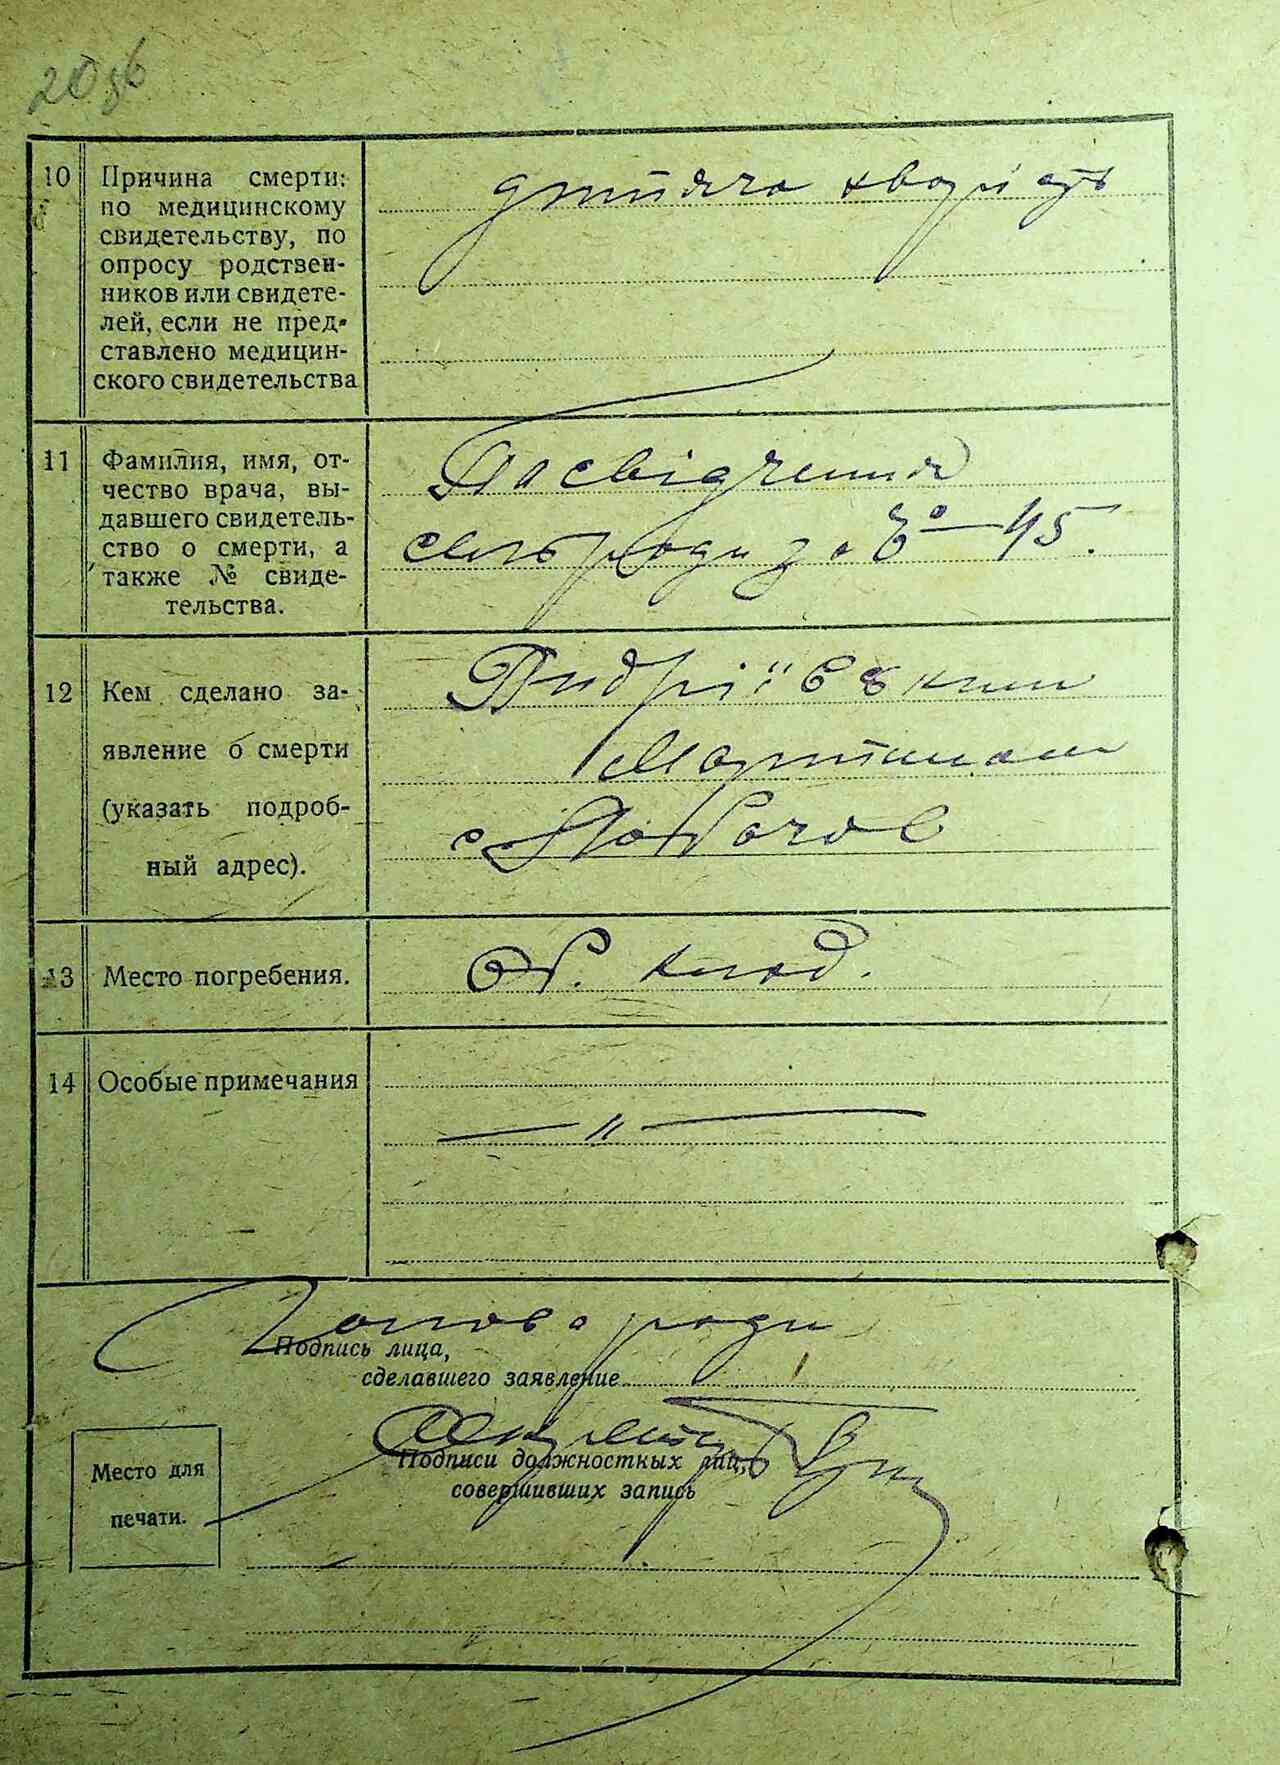 20 об
10 Причина смерти:
по медицинскому
свидетельству, по
опросу родствен-
ников или свидете-
лей, если не пред-
ставлено медицин-
ского свидетельства
дитяча хворість
11 Фамилия, имя, от-
чество врача, вы-
давшего свидетель-
ство о смерти, а
также № свиде-
тельства.
Посвідчення
сельради за №-45.
12 Кем сделано за-
явление о смерти
(указать подроб-
ный адрес).
Андріївським
Мартином
с.
13 Место погребения.
Об. клад.
14 Особые примечания
— " —
Голова ради
Подпись лица,
сделавшего заявление
Секретарь
Подписи должностных лиц,
совершивших запись
Место для
печати.